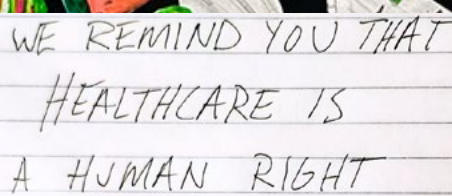 WE REMIND YOU THAT
HEALTHCARE IS
A HUMAN RIGHT